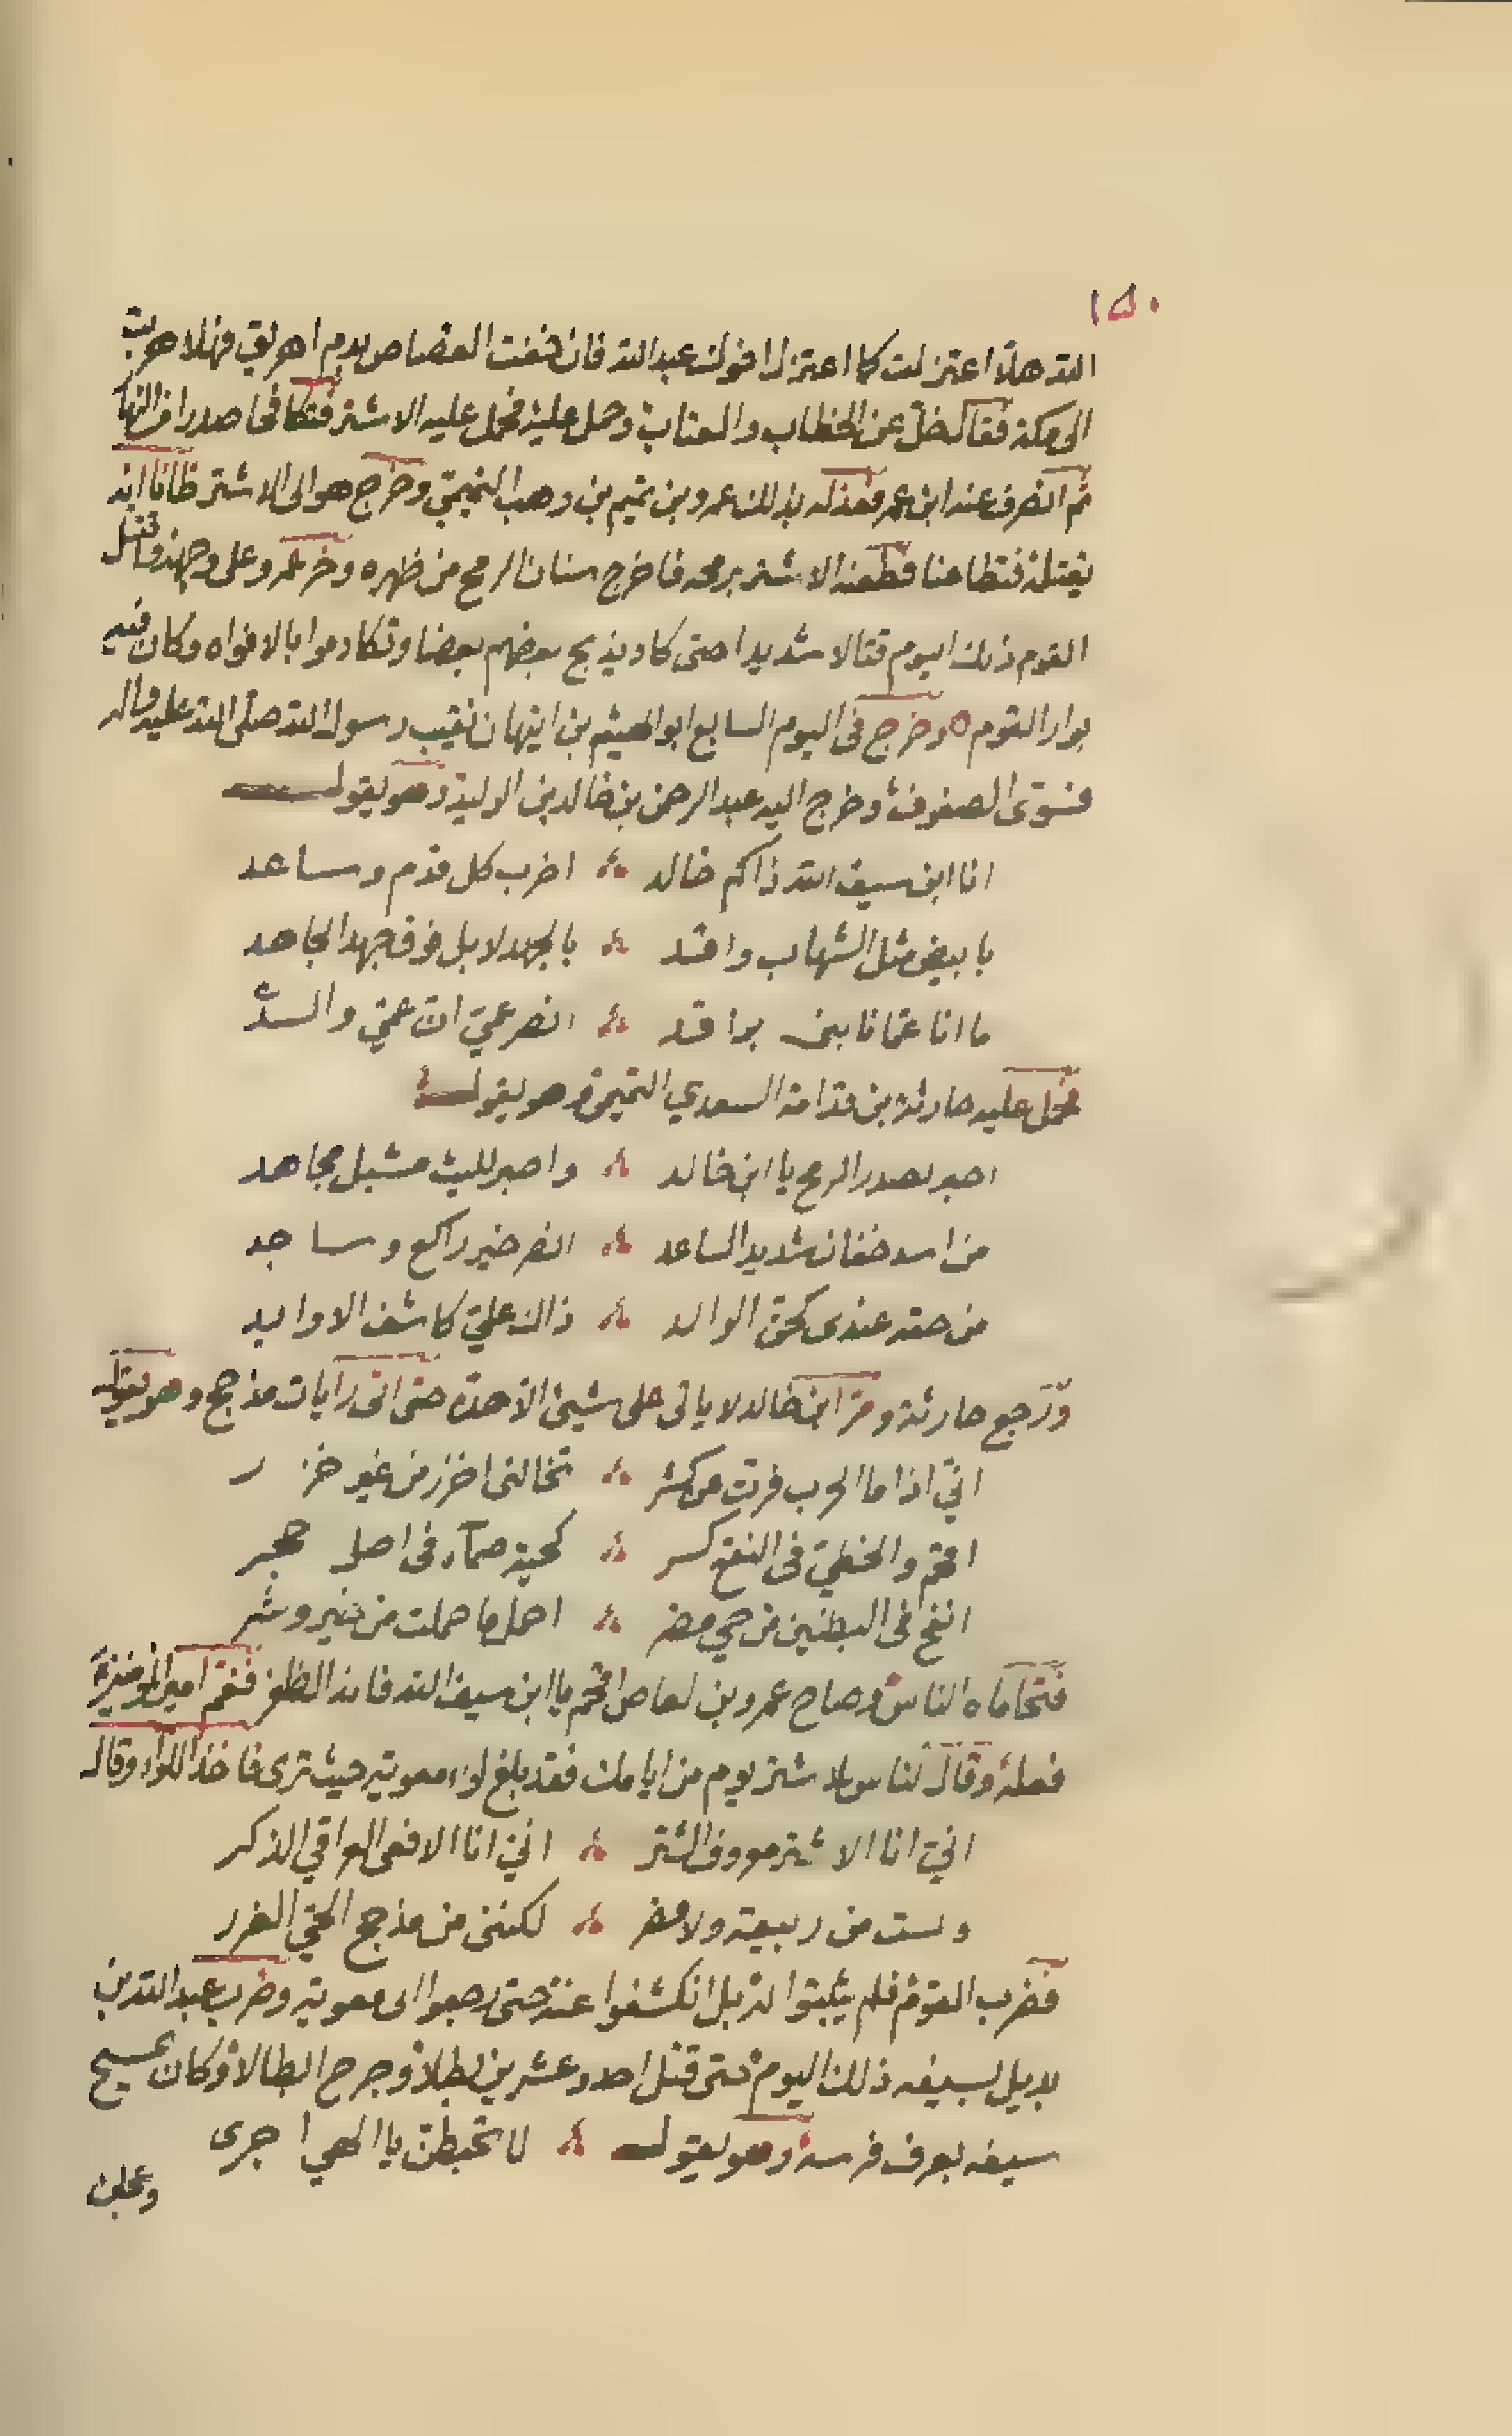 ١٥٠
الله هلا اعتزلت كما اعتزل اخوك عبدالله فان خفت القصاص بدم اهريق فهلا هربت
الى مكة فقال خل عن الخطاب والعتاب وحمل عليه فحمل عليه الاشتر فتكافحا صدرا من النهار
ثم انصرف عنه ابن عمر فعذله بذلك عمرو بن تميم بن وهب التميمي وخرج هو الى الاشتر ظانا انه
يقتله فتطاعنا فطعنه الاشتر برمحه فاخرج سنان الرمح من ظهره وخر عمرو على وجهه وقتل
القوم ذلك اليوم قتالا شديدا حتى كاد يذبح بعضهم بعضا وتكادموا بالافواه وكان فيه
بوار القوم وخرج في اليوم السابع ابو الهيثم بن التيهان نقيب رسول الله صلى الله عليه واله
فسوى الصفوف وخرج اليه عبد الرحمن بن خالد بن الوليد وهو يقول
انا ابن سيف الله ذاكم خالد اضرب كل قدم وساعد
بابيض مثل الشهاب واقد بالجهد لا بل فوق جهد الجاهد
ما انا عما نابنى براقد انصر عمي ان عمي والد
فحمل عليه حارثة بن قدامة السعدي التميمي وهو يقول
اصبر لصدر الرمح يا ابن خالد واصبر لليث مشبل مجاهد
من اسد خفان شديد الساعد انصر خير راكع وساجد
من حقه عندى كحق الوالد ذاك علي كاشف الاوابد
ورجع حارثة ومر ابن خالد لا ياتى على شيئ الا هده حتى اتى رايات مذحج وهو يقول
اني اذا ما الحرب فرت عن كشر تخالنى اخزر من غير خزر
اقحم والخطي في النقع كسر كحية صماء في اصل حجر
احمل ما حملت من خير وشر
فتحاماه الناس وصاح عمرو بن لعاص اقحم يا ابن سيف الله فانه الظفر فغم امير المؤمنين
فعله وقال لناس للاشتر يوم من ايامك فقد بلغ لواء معوية حيث ترى فاخذ اللواء وقال
اني انا الاشتر معروف الشتر اني انا الافعى العراقي الذكر
ولست من ربيعة ولا مضر لكننى من مذحج الحي الغرر
فضرب القوم فلم يثبتوا له بل انكشفوا عنه حتى رجعوا الى معوية وضرب عبدالله بن
بديل بسيفه ذلك اليوم حتى قتل احد وعشرين بطلا وجرح ابطالا وكان يمسح
سيفه بعرف فرسه وهو يقول لا تحبطن يا الهي اجرى